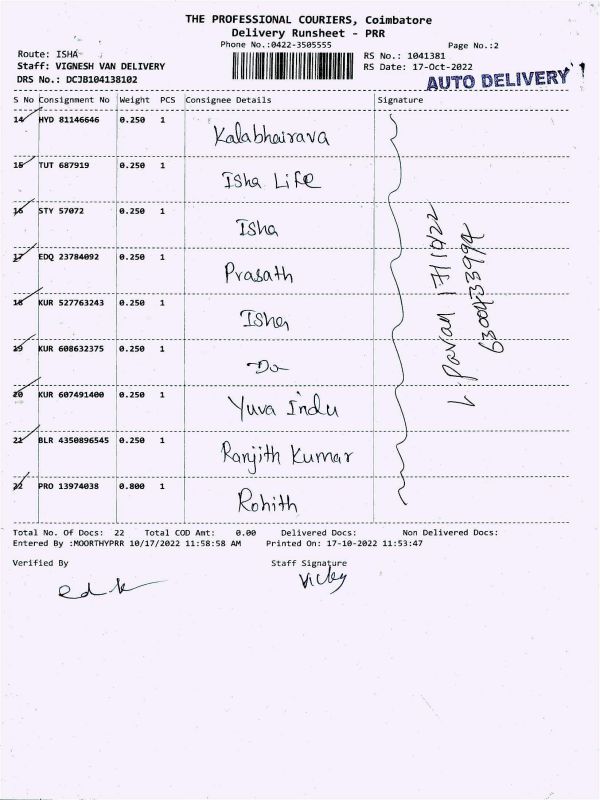 THE PROFESSIONAL COURIERS, Coimbatore
Delivery Runsheet - PRR
Phone No.:0422-3505555 Page No.:2
Route: ISHA
Staff: VIGNESH VAN DELIVERY
DRS No.: DCJB104138102
RS No.: 1041381
RS Date: 17-Oct-2022
AUTO DELIVERY
S No Consignment No Weight PCS Consignee Details Signature
14 HYD 81146646 0.250 1 Kalabhairava
15 TUT 687919 0.250 1 Isha Life
16 STY 57072 0.250 1 Isha
17 EDQ 23784092 0.250 1 Prasath
18 KUR 527763243 0.250 1 Isha
19 KUR 608632375 0.250 1 Do
20 KUR 607491400 0.250 1 Yuva Indu
21 BLR 4350896545 0.250 1 Ranjith Kumar
22 PRO 13974038 0.800 1 Rohith
L. Pavan 17/10/22
6300433994
Total No. Of Docs: 22 Total COD Amt: 0.00 Delivered Docs: Non Delivered Docs:
Entered By :MOORTHYPRR 10/17/2022 11:58:58 AM Printed On: 17-10-2022 11:53:47
Verified By Staff Signature
Vicky